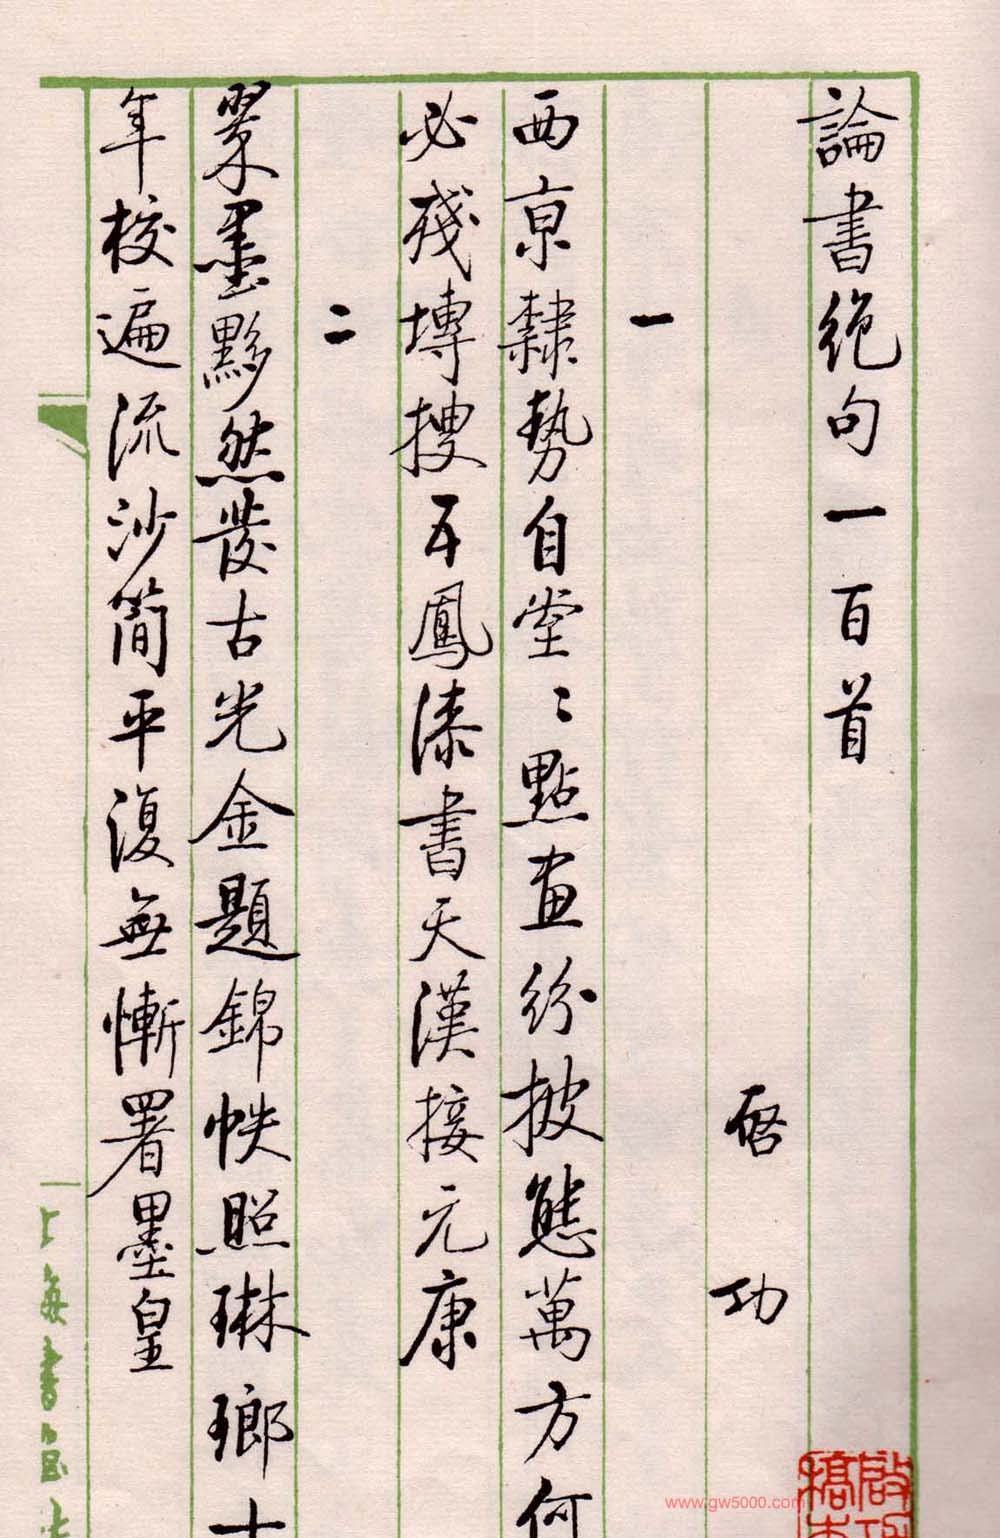 論書絕句一百首
啓功
一
西京隸勢自堂〻點畫紛披態萬方何
必殘塼搜五鳳漆書天漢接元康
二
翠墨黟然發古光金題錦帙照琳瑯十
年校遍流沙簡平復無慚署墨皇
上海書画
www.gw5000.com